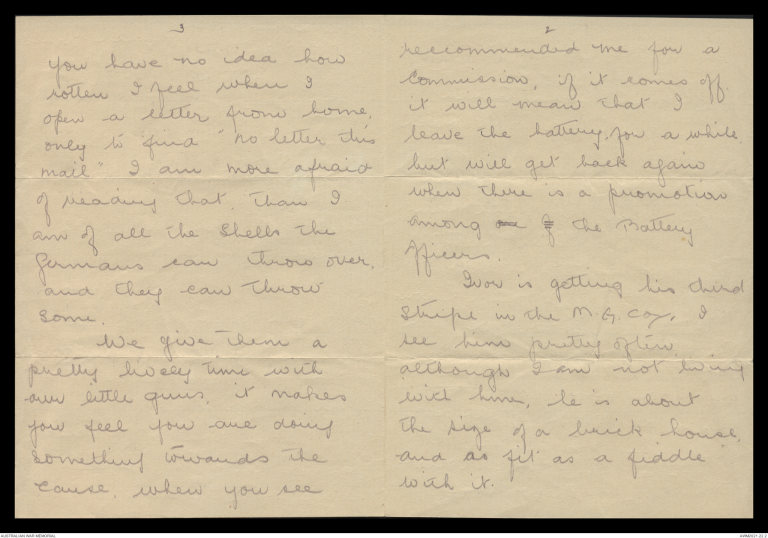 3
you have no idea how
rotten I feel when I
open a letter from home,
only to find "no letter this
mail" I am more afraid
of reading that, than I
am of all the shells the
Germans can throw over,
and they can throw
some.
We give them a
pretty lively time with
our little guns, it makes
you feel you are doing
something towards the
cause, when you see
2
reccommended me for a
Commission, if it comes off
it will mean that I
leave the battery, for a while
but will get back again
when there is a promotion
among the Battery
Officers.
Ivor is getting his third
stripe in the M.G. Coy, I
see him pretty often
although I am not living
with him, he is about
the size of a brick house,
and as fit as a fiddle
with it.
AUSTRALIAN WAR MEMORIAL